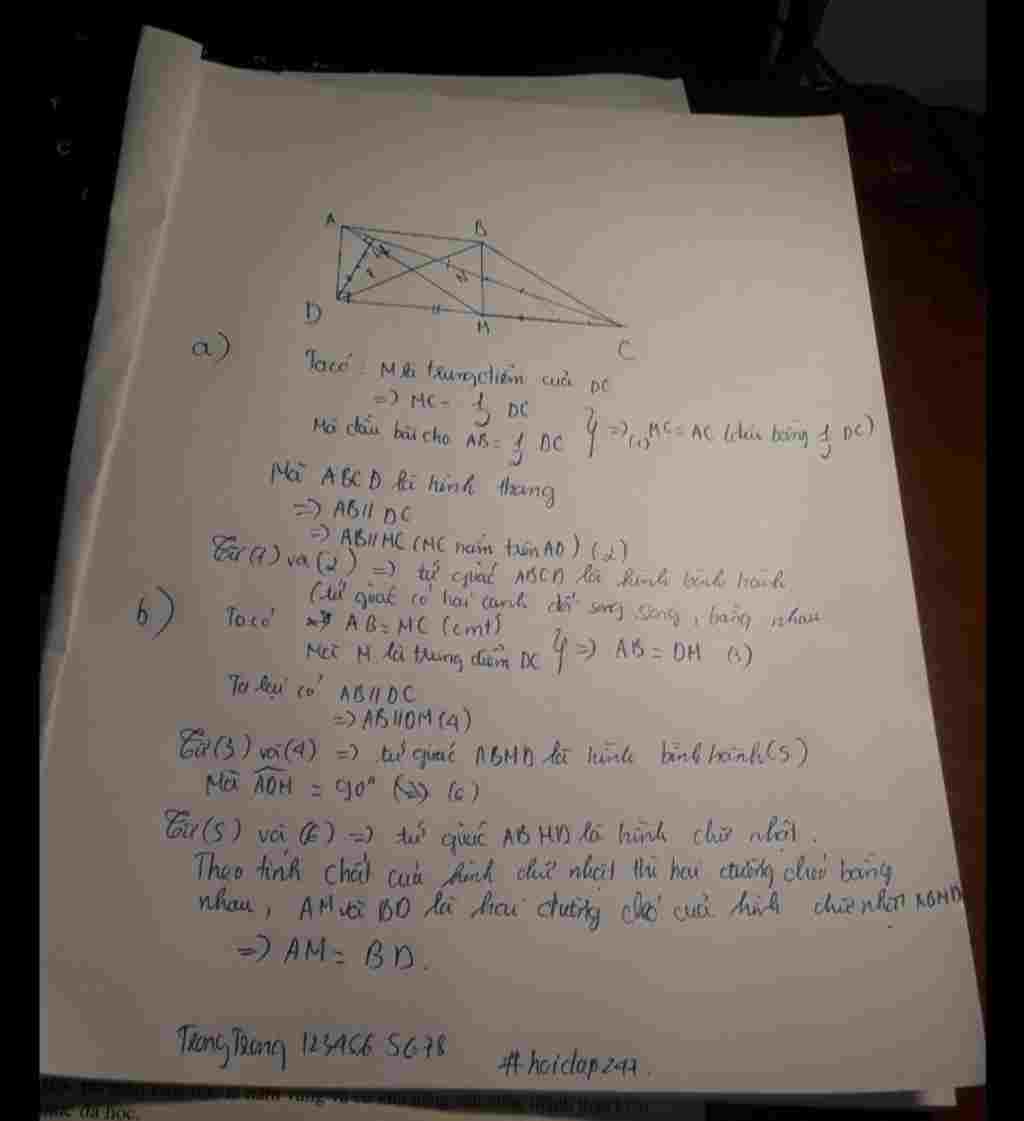 A
B
D
M
C
a)
Ta có: M là trung điểm của DC
=> MC = 1/2 DC
Mà đầu bài cho AB = 1/2 DC } => (1) MC = AC (đều bằng 1/2 DC)
Mà ABCD là hình thang
=> AB // DC
=> AB // MC (MC nằm trên AD) (2)
Từ (1) và (2) => tứ giác ABCD là hình bình hành
(tứ giác có hai cạnh đối song song, bằng nhau
b)
Ta có AB = MC (cmt)
Mà M là trung điểm DC } => AB = DM (3)
Ta lại có AB // DC
=> AB // DM (4)
Từ (3) và (4) => tứ giác ABMD là hình bình hành (5)
Mà ADM = 90° (6)
Từ (5) và (6) => tứ giác ABMD là hình chữ nhật.
Theo tính chất của hình chữ nhật thì hai đường chéo bằng
nhau, AM và BD là hai đường chéo của hình chữ nhật ABMD
=> AM = BD.
TrangTrang 123456 5678
#hoidap247.
đã học.